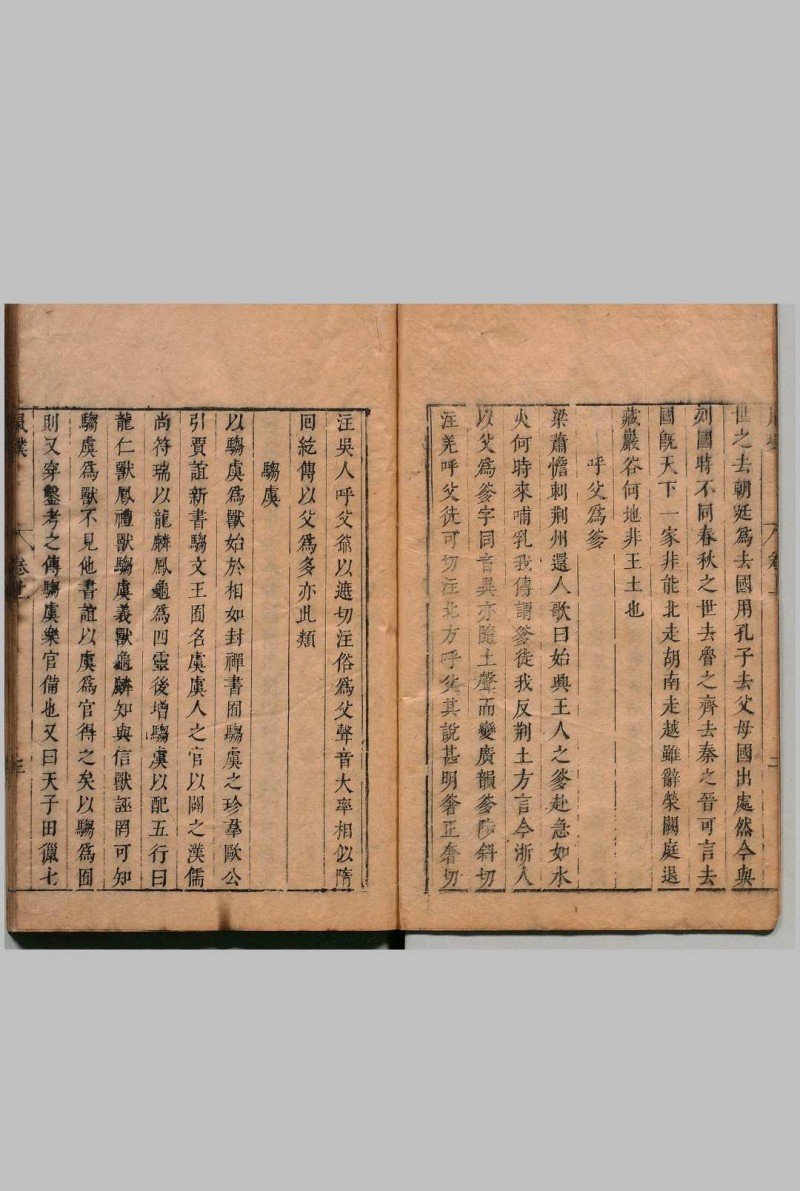 世之去朝廷爲去國用孔子去父母國出處然今與
列國時不同春秋之世去魯之齊去秦之晉可言去
國旣天下一家非能北走胡南走越雖辭榮闕庭退
藏巖谷何地非王土也
呼父爲爹
梁蕭憺刺荆州還人歌曰始興王人之爹赴急如水
火何時來哺乳我傳謂爹徒我反荆土方言今浙人
以父爲爹字同音異亦隨土聲而變廣韻爹陟斜切
注羌呼父徒可切注北方呼父其說甚明爹正奢切
注吳人呼父爺以遮切注俗爲父聲音大率相似隋
回紇傳以父爲多亦此類
騶虞
以騶虞爲獸始於相如封禪書囿騶虞之珍羣歐公
引賈誼新書騶文王囿名虞虞人之官以闢之漢儒
尚符瑞以龍麟鳳龜爲四靈後增騶虞以配五行曰
龍仁獸鳳禮獸騶虞義獸龜麟知與信獸誣罔可知
騶虞爲獸不見他書誼以虞爲官得之矣以騶爲囿
則又穿鑿考之傳騶虞樂官備也又曰天子田獵七